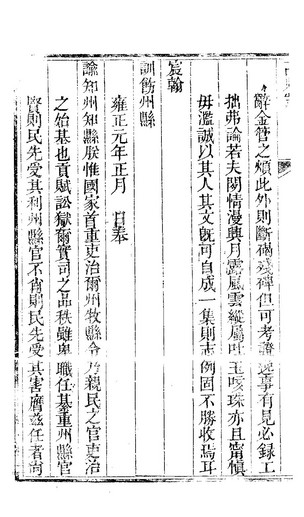 辭金管之煩此外則斷碣殘碑但可考證逸事有見必錄工
拙弗論若夫閑情漫興月露風雲縱屬吐玉咳珠亦且甯愼
毋濫誠以其人其文旣可自成一集則志例固不勝收焉耳
宸翰
訓飭州縣
雍正元年正月 日奉
諭知州知縣朕惟國家首重吏治爾州牧縣令乃親民之官吏治
之始基也貢賦訟獄爾實司之品秩雖卑職任綦重州縣官
賢則民先受其利州縣官不肖則民先受其害膺茲任者尙